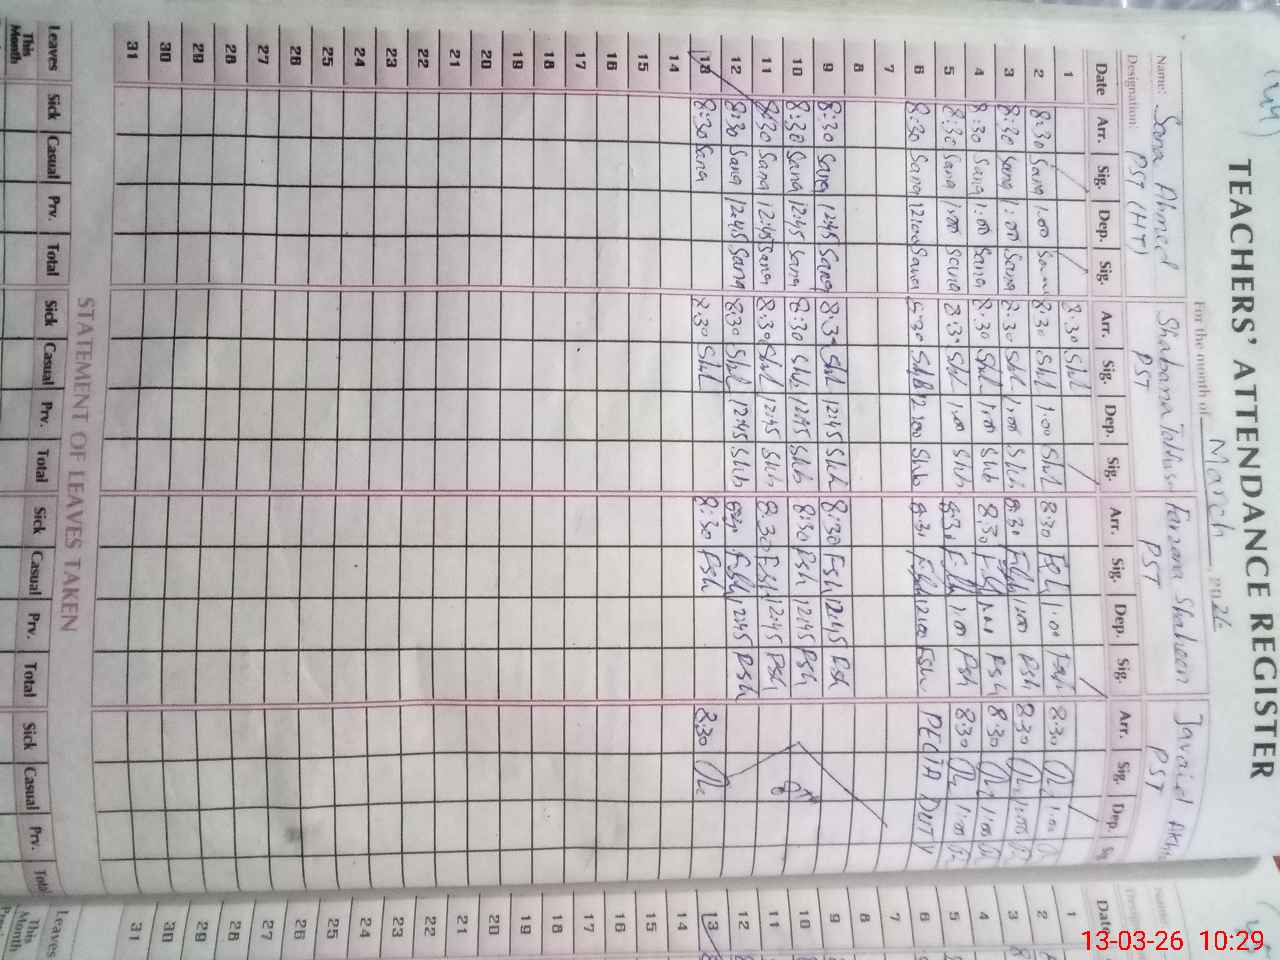 (44)
TEACHERS' ATTENDANCE REGISTER
For the month of March, 2026
Name: Sana Ahmed Shabana Farzana Shaheen Javaid
Designation: PST (HT) PST PST PST
Date Arr. Sig. Dep. Sig. Arr. Sig. Dep. Sig. Arr. Sig. Dep. Sig. Arr. Sig. Dep.
1 8:30 Shl
2 8:30 Sana 1:00 8:30 Shl 1:00 Shl 8:30 1:00 8:30 1:00
3 8:30 Sana 1:00 Sana 8:30 Shl 1:00 Shl 8:30 1:00 Fsh 8:30 1:00
4 8:30 Sana 1:00 Sana 8:30 Shl 1:00 Shb 8:30 1:00 Fsh 8:30 1:00
5 8:30 Sana 1:00 Sana 8:30 Shl 1:00 Shb 8:30 1:00 Fsh 8:30 1:00
6 8:30 Sana 12:00 Sana 8:30 Shb 12:00 Shb 8:30 12:00 Fsh PECTA DUTY
7
8
9 8:30 Sana 12:45 Sana 8:30 Shl 12:45 Shb 8:30 Fsh 12:45 Fsh
10 8:30 Sana 12:45 Sana 8:30 Shb 12:45 Shb 8:30 Fsh 12:45 Fsh
11 8:30 Sana 12:45 Sana 8:30 Shl 12:45 Shb 8:30 Fsh 12:45 Fsh
12 8:30 Sana 12:45 Sana 8:30 Shl 12:45 Shb Fsh 12:45 Fsh
13 8:30 Sana 8:30 Shl 8:30 Fsh 8:30
14
15
16
17
18
19
20
21
22
23
24
25
26
27
28
29
30
31
STATEMENT OF LEAVES TAKEN
Leaves Sick Casual Prv. Total Sick Casual Prv. Total Sick Casual Prv. Total Sick Casual Prv. Total
This Month
Date
1
2
3
4
5
6
7
8
9
10
11
12
13
14
15
16
17
18
19
20
21
22
23
24
25
26
27
28
29
30
31
Leaves
This Month
13-03-26 10:29